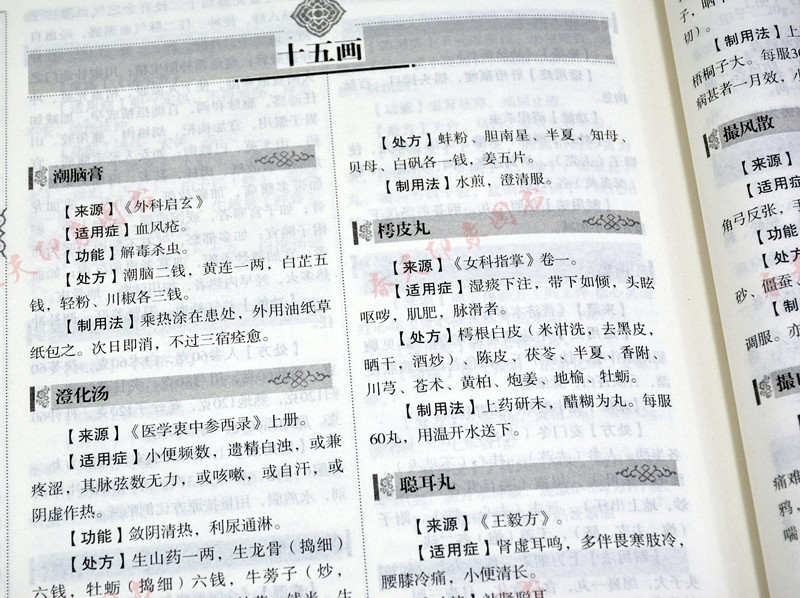 十五画
潮脑膏
【来源】《外科启玄》
【适用症】血风疮。
【功能】解毒杀虫。
【处方】潮脑二钱，黄连一两，白芷五
钱，轻粉、川椒各三钱。
【制用法】乘热涂在患处，外用油纸草
纸包之。次日即消，不过三宿痊愈。
澄化汤
【来源】《医学衷中参西录》上册。
【适用症】小便频数，遗精白浊，或兼
疼涩，其脉弦数无力，或咳嗽，或自汗，或
阴虚作热。
【功能】敛阴清热，利尿通淋。
【处方】生山药一两，生龙骨（捣细）
六钱，牡蛎（捣细）六钱，牛蒡子（炒，
【处方】蚌粉、胆南星，半夏，知母、
贝母、白矾各一钱，姜五片。
【制用法】水煎，澄清服。
樗皮丸
【来源】《女科指掌》卷一。
【适用症】湿痰下注，带下如倾，头眩
呕哕，肌肥，脉滑者。
【处方】樗根白皮（米泔洗，去黑皮，
晒干，酒炒）、陈皮、茯苓、半夏、香附、
川芎、苍术、黄柏、炮姜、地榆、牡蛎。
【制用法】上药研末，醋糊为丸。每服
60丸，用温开水送下。
聪耳丸
【来源】《王毅方》。
【适用症】肾虚耳鸣，多伴畏寒肢冷，
腰膝冷痛，小便清长。
子，晒
切）。
【制用法】上
梧桐子大。每服30
病甚者一月效，小
撮风散
【来源】
【适用症
角弓反张，手
【功能
【处方
砂、僵蚕、
调服。亦
撮
痛难
鸦，
喘